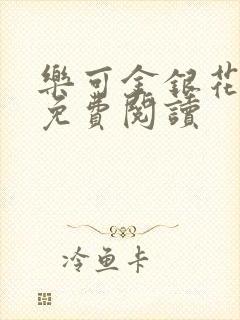 樂可金銀花
免費閱讀
冷鱼卡